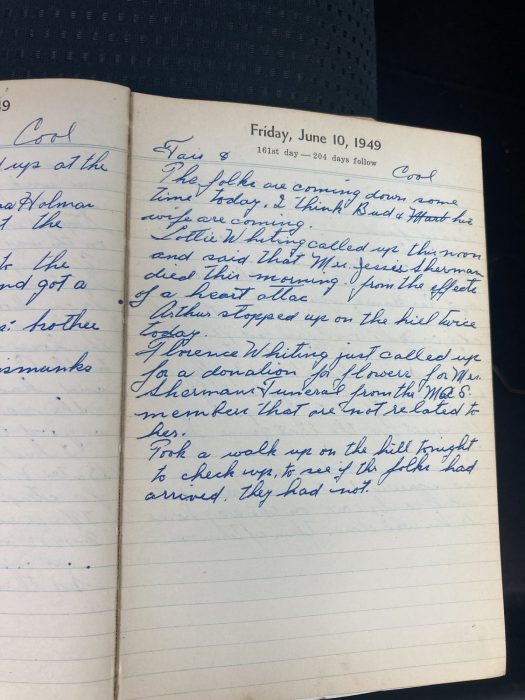 49
Cool
up at the
Holman
the
to the
nd got a
brother
Friday, June 10, 1949
161st day — 204 days follow
Fair & Cool
The folks are coming down some
time today. I think Bud & his
wife are coming.
Lottie Whiting called up this noon
and said that Mrs. Jessie Sherman
died this morning from the effects
of a heart attac
Arthur stopped up on the hill twice
today.
Florence Whiting just called up
for a donation for flowers for Mrs.
Shermans Funeral from the
members that are not related to
her.
Took a walk up on the hill tonight
to check up, to see if the folks had
arrived. they had not.